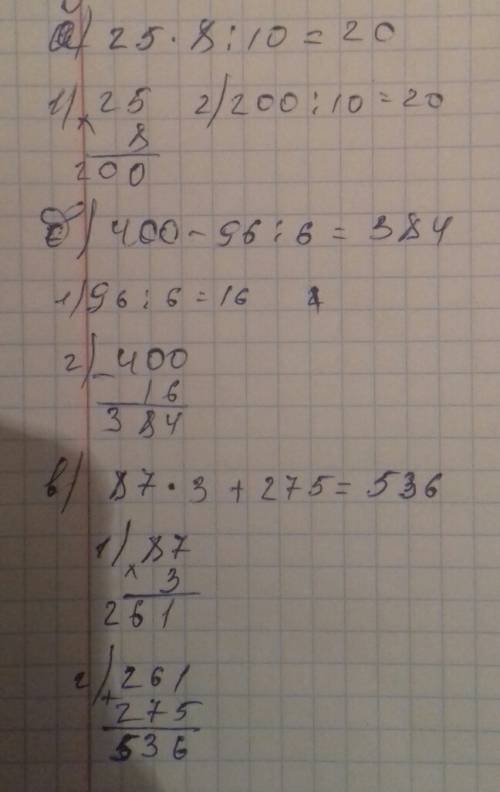 а) 25 · 8 : 10 = 20
1) × 25 2) 200 : 10 = 20
8
200
б) 400 - 96 : 6 = 384
1) 96 : 6 = 16
2) - 400
16
384
в) 87 · 3 + 275 = 536
1) × 87
3
261
2) + 261
275
536